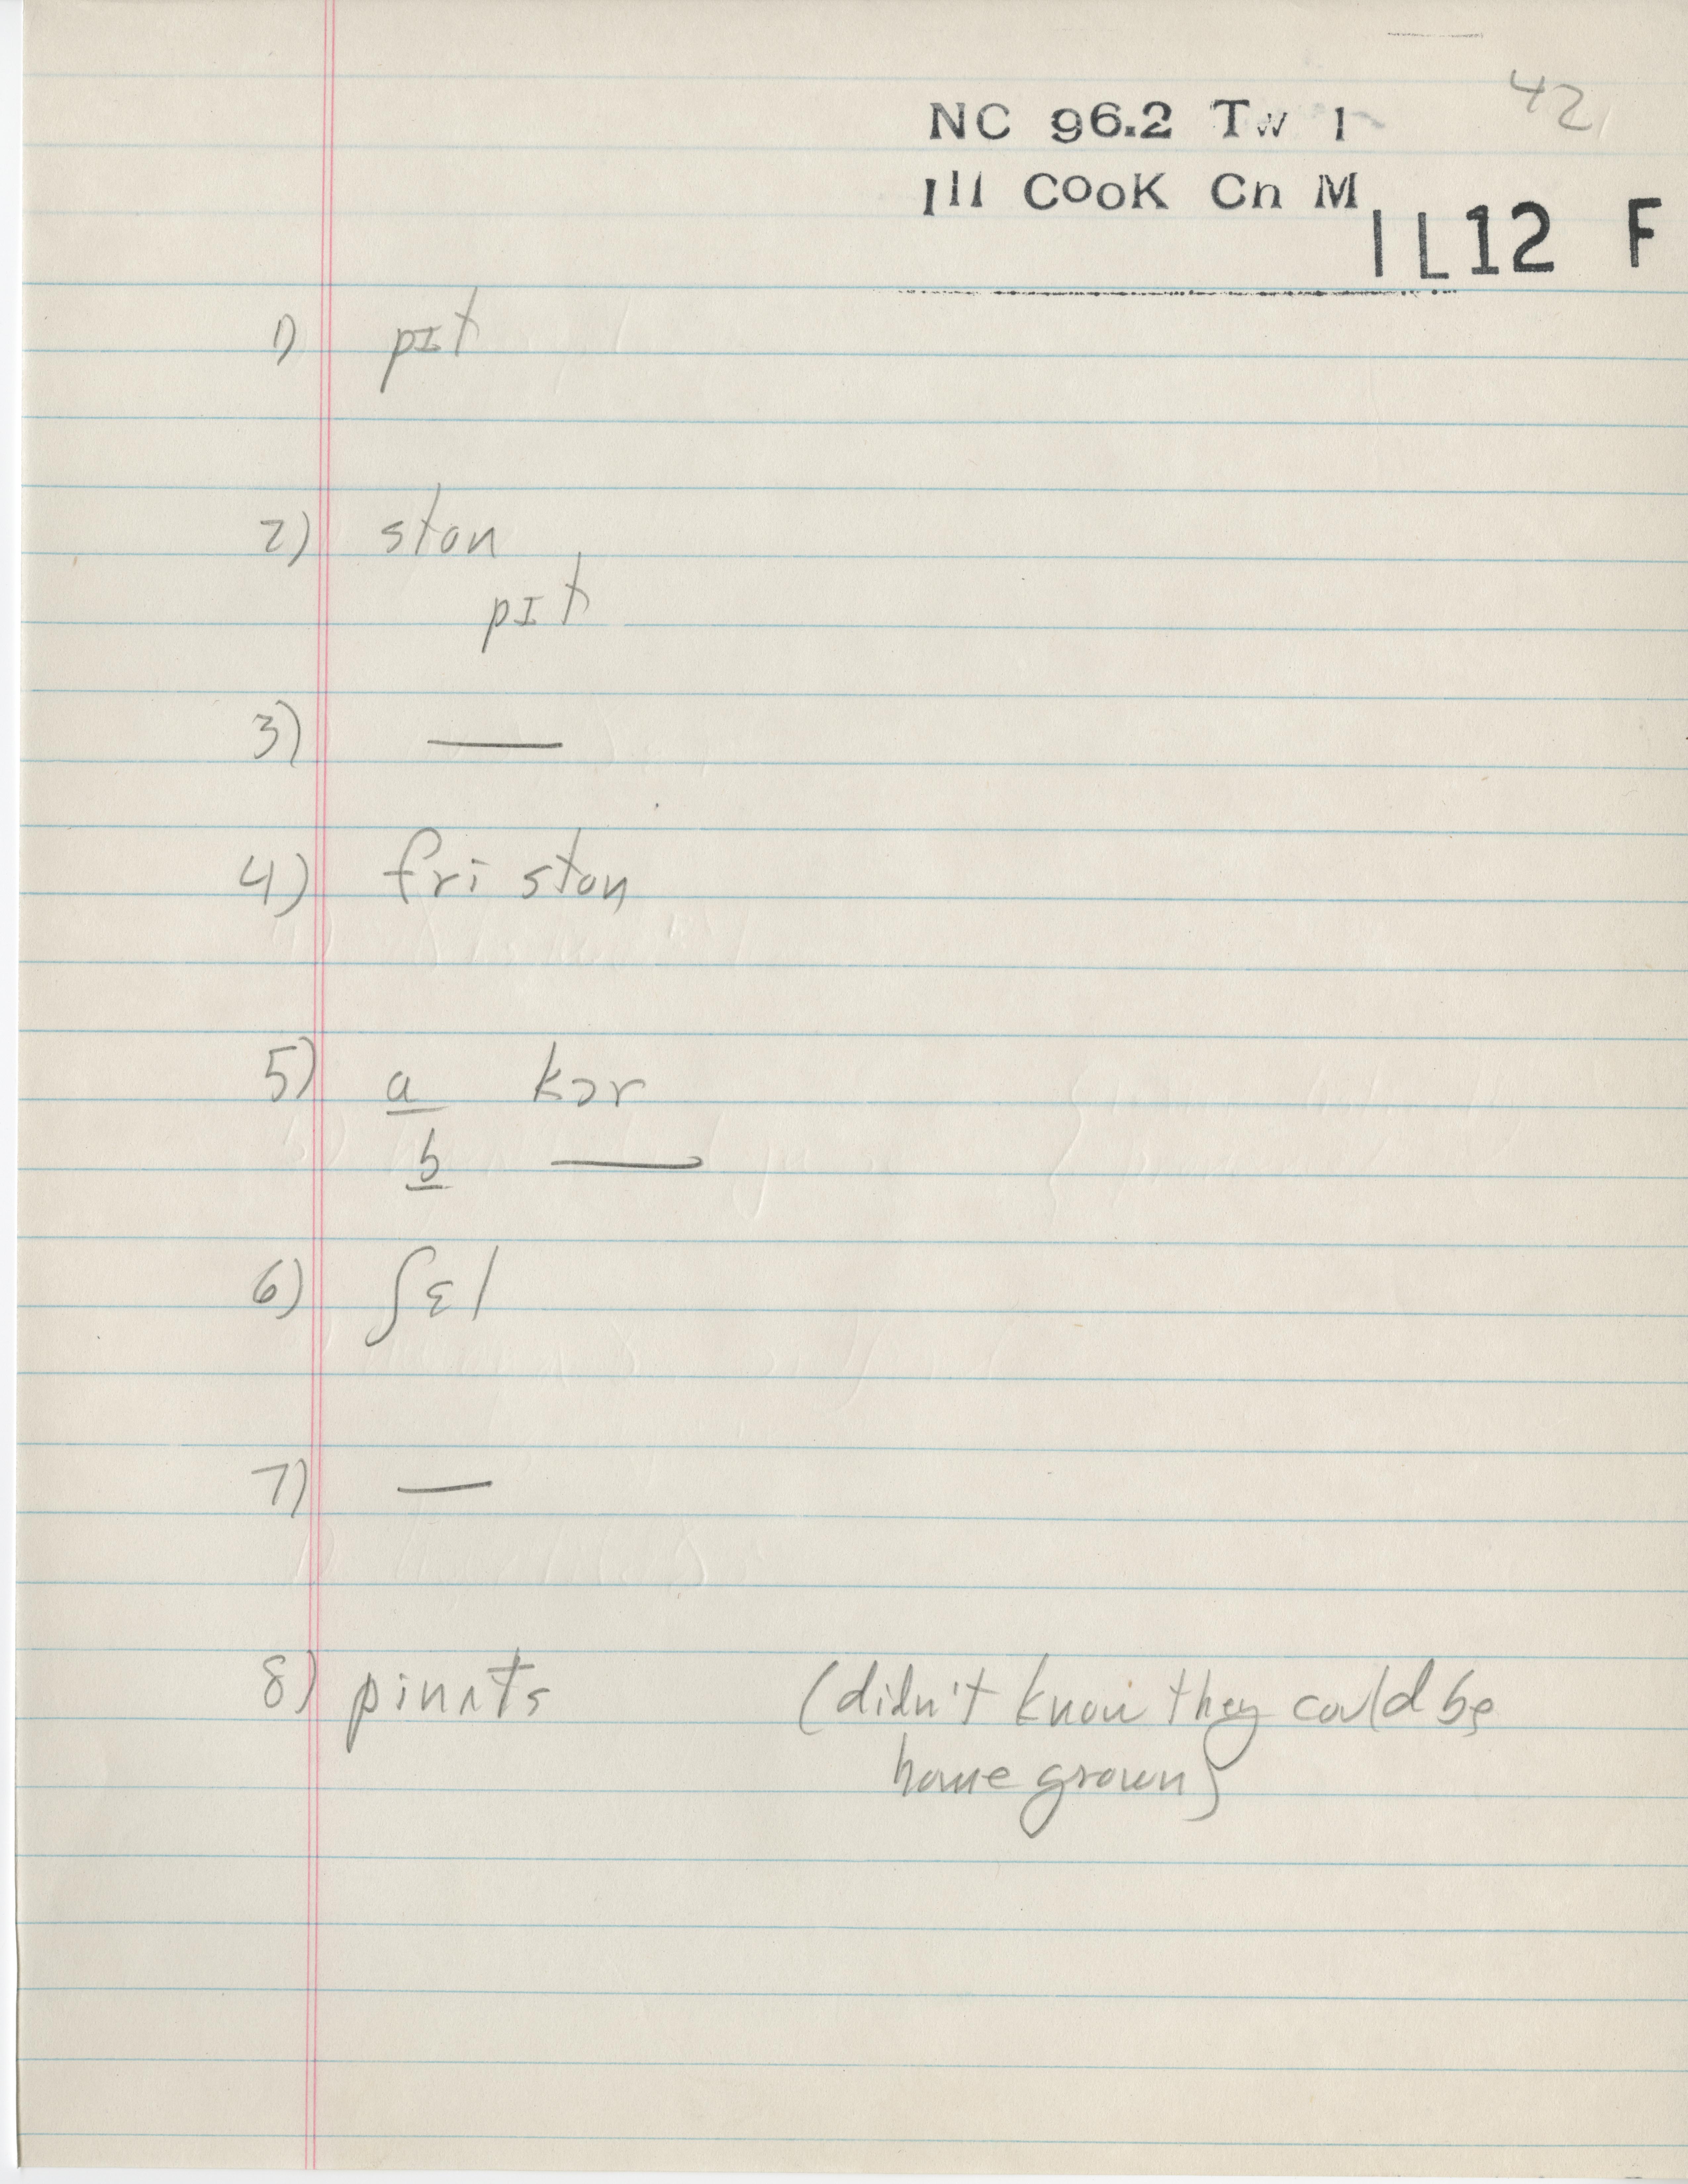 42
NC 96.2 Tw 1
Ill CooK Cn M
IL12 F
1) pɪt
2) ston
pɪt
3) —
4) fri ston
5) a kɔr
b —
6) ʃɛl
7) —
8) pinʌts (didn't know they could be
home grown)